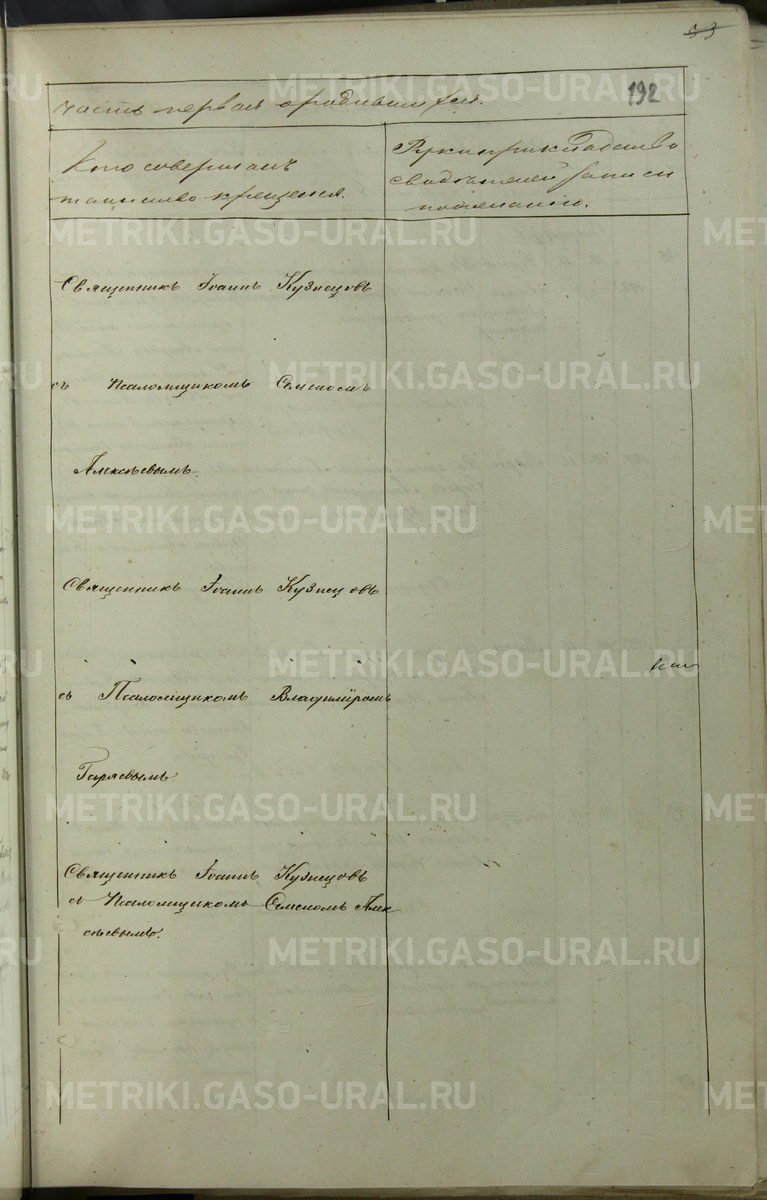 53
192
часть первая о родившихся.
Кто совершалъ
таинство крещенія.
Рукоприкладство
свидѣтелей записи
по желанію.
Священникъ Іоаннъ Кузнецовъ
съ Псаломщикомъ Семеномъ
Алексѣевымъ.
Священникъ Іоаннъ Кузнецовъ
съ Псаломщикомъ Владиміромъ
Священникъ Іоаннъ Кузнецовъ
съ Псаломщикомъ Семеномъ Алек
сѣевымъ.
METRIKI.GASO-URAL.RU